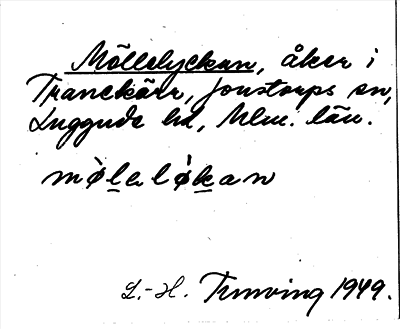 Möllelyckan, åker i
Tranekärr, Jonstorps sn,
Luggude hd, Mlm. län.
møleløkan
L.-H. Trunving 1949.